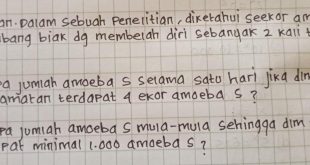 Dalam sebuah penelitian, diketahui seekor am
bang biak dg membelah diri sebanyak 2 kali
pa jumlah amoeba S selama satu hari jika din
amatan terdapat 4 ekor amoeba S ?
pa jumlah amoeba S mula-mula sehingga dlm
pat minimal 1.000 amoeba S ?